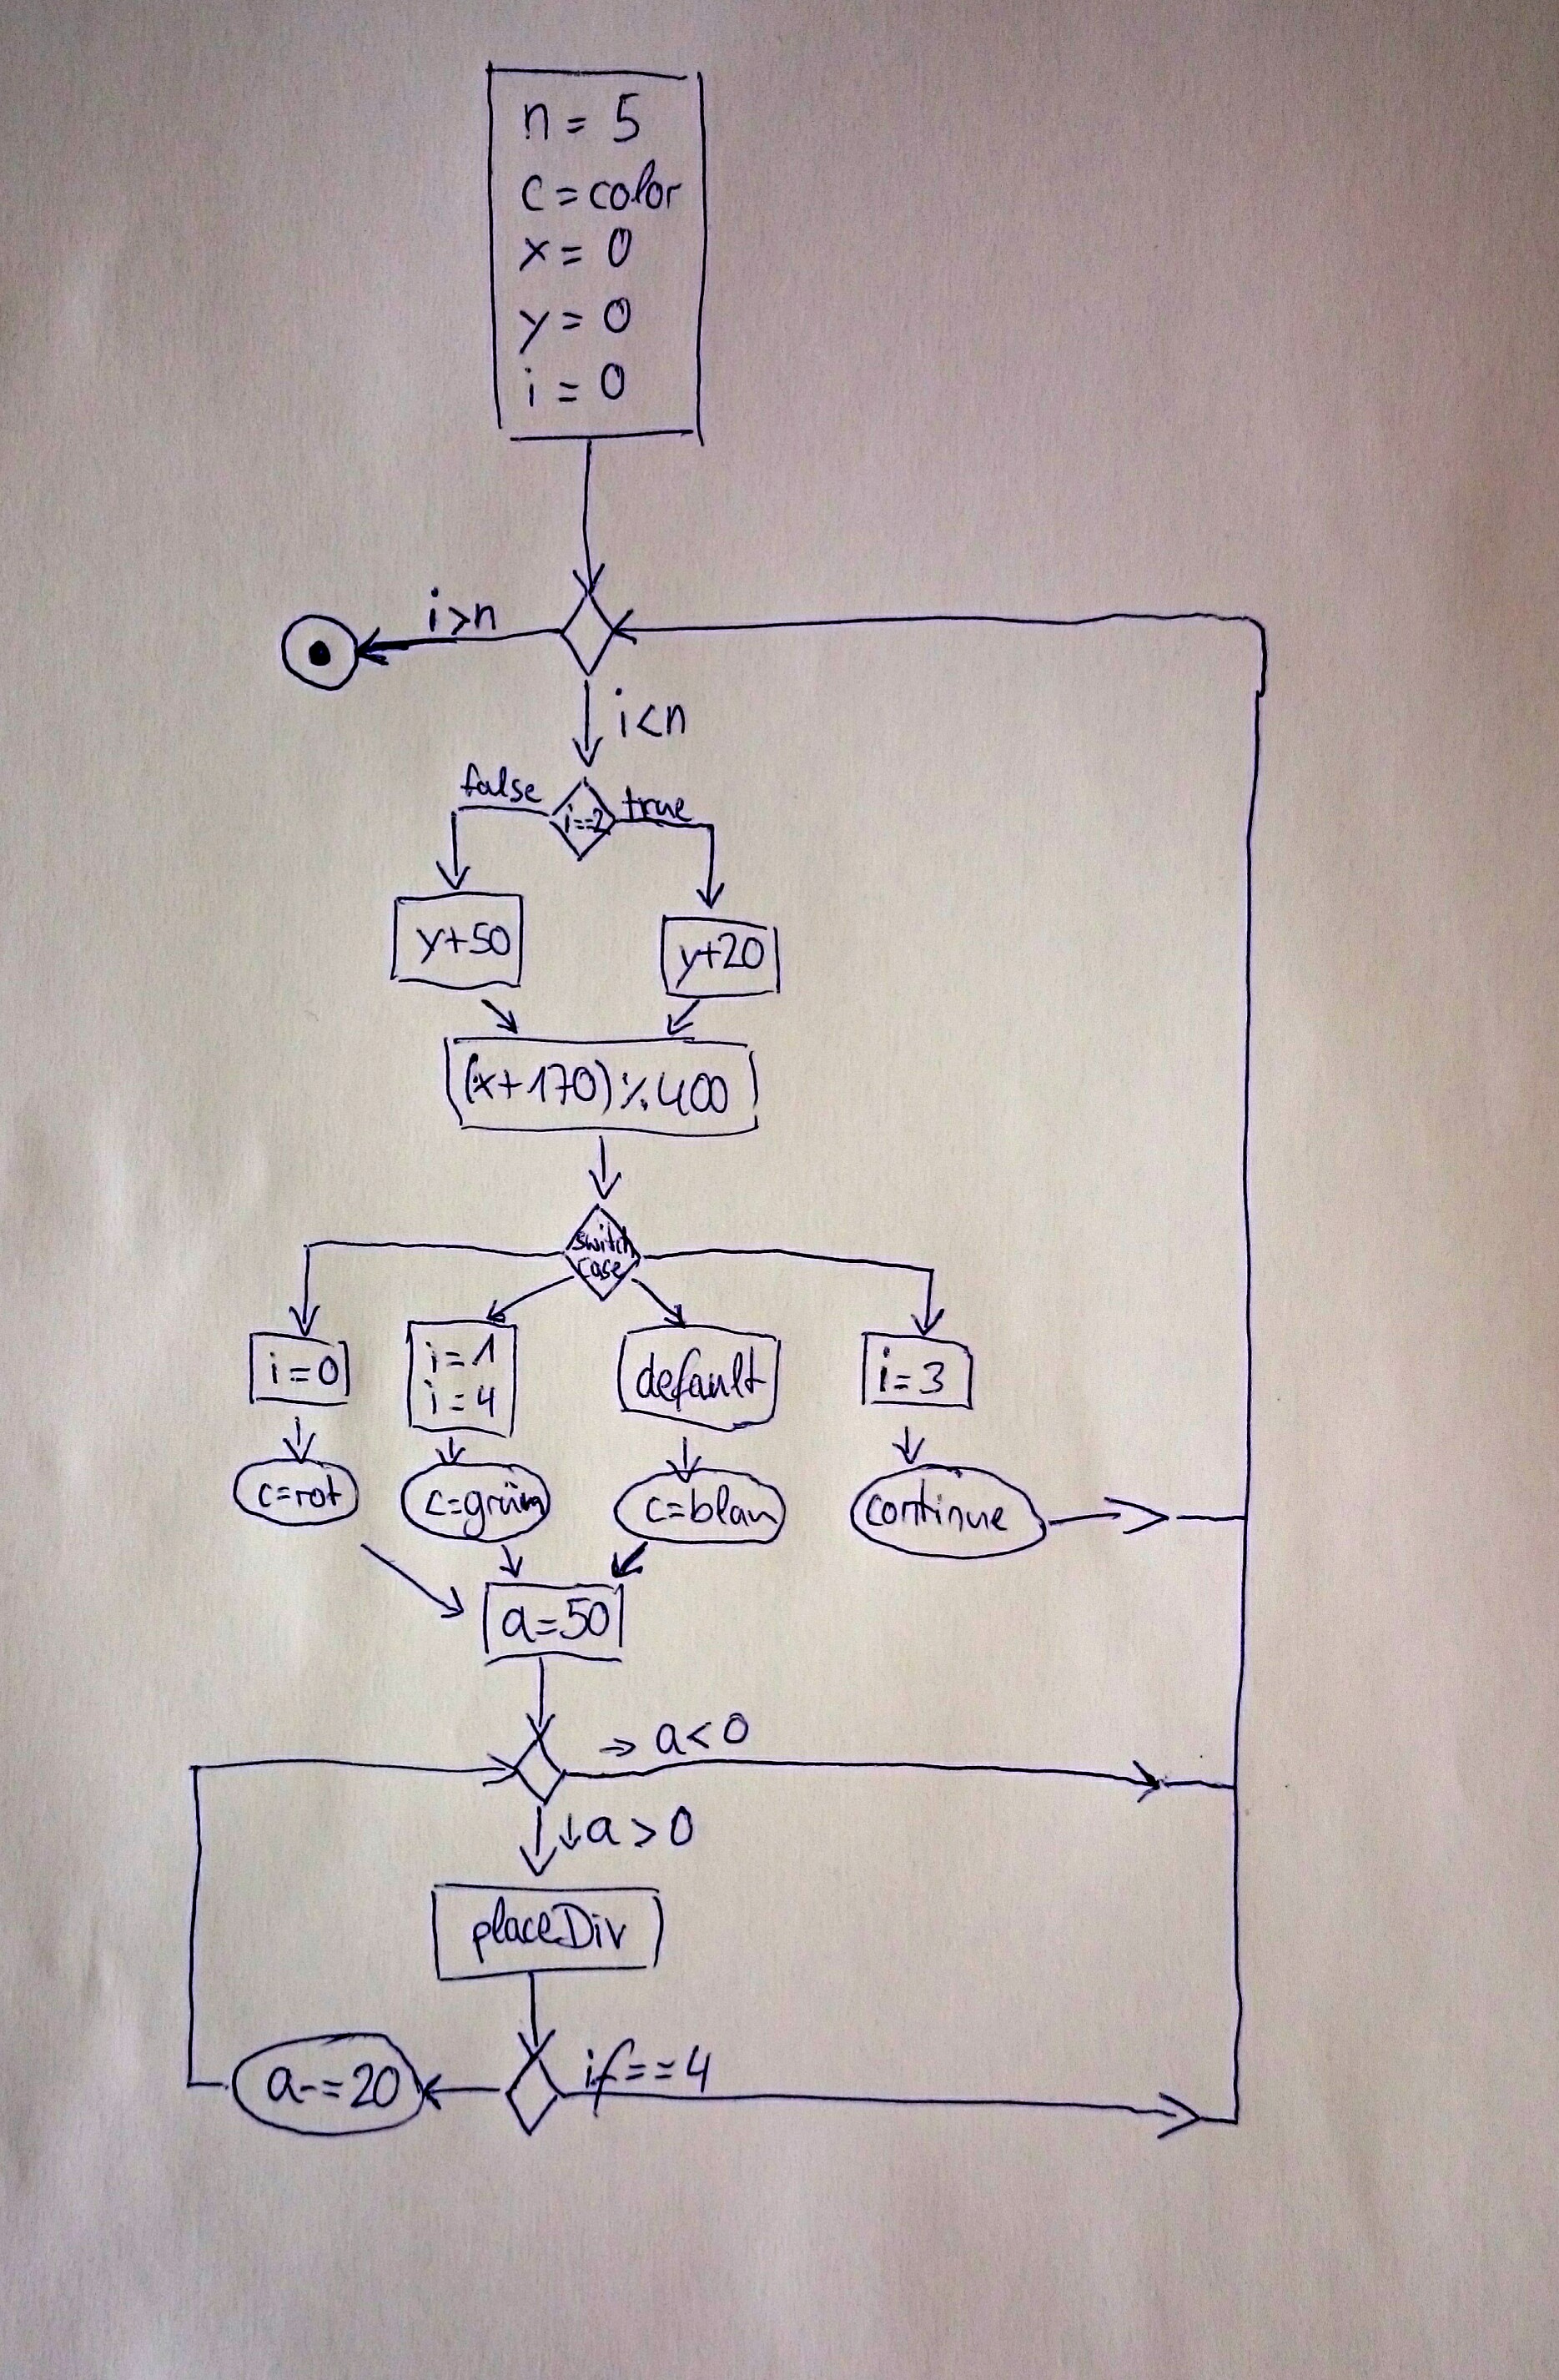 n = 5
c = color
x = 0
y = 0
i = 0
i>n
i<n
false
i==2
true
y+50
y+20
(x+170)%400
switch
case
i=0
i=1
i=4
default
i=3
c=rot
c=grün
c=blau
continue
a=50
→ a<0
↓a>0
placeDiv
a-=20
if==4